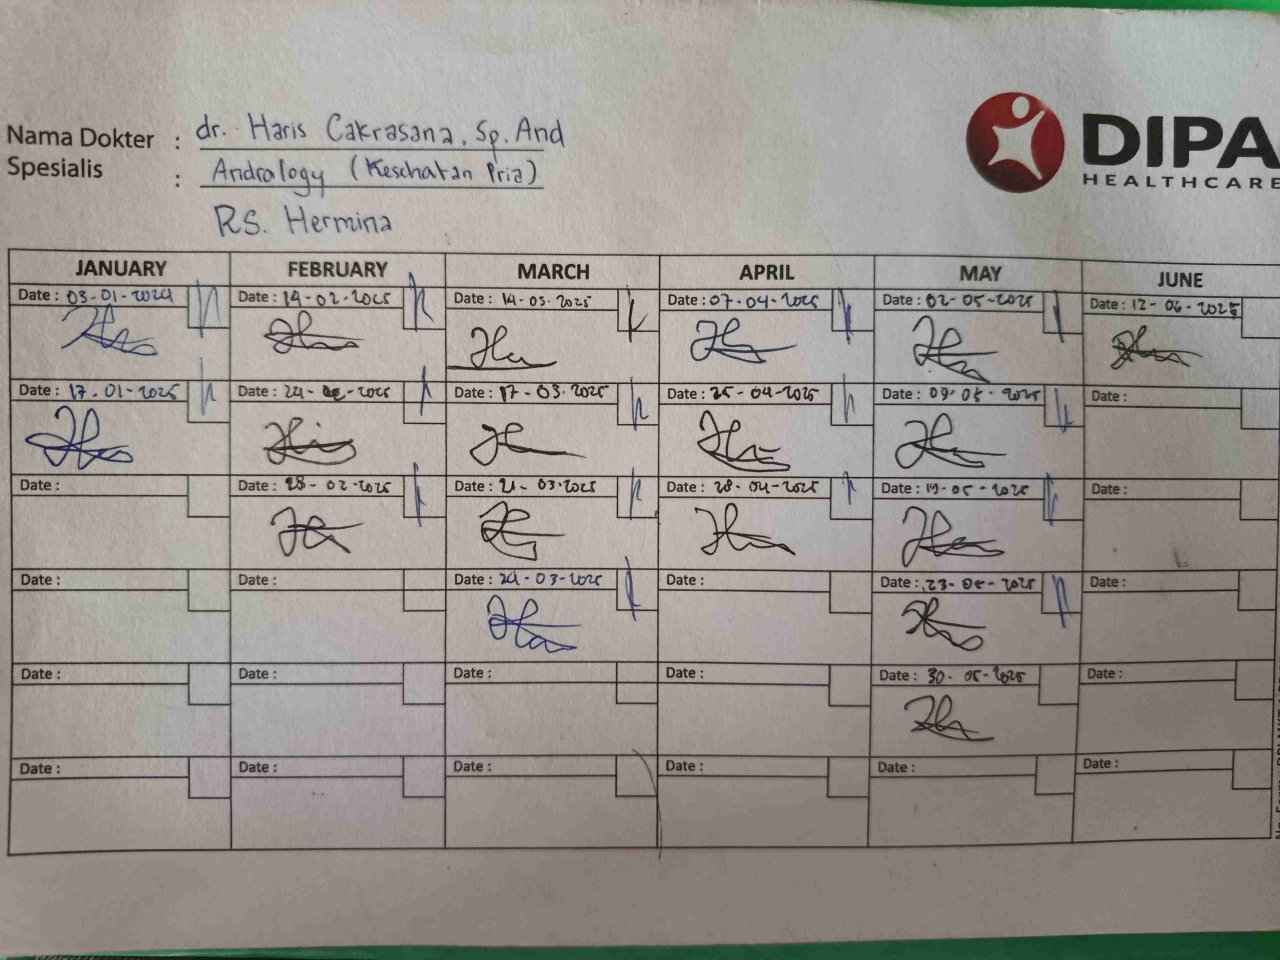 Nama Dokter : dr. Haris Cakrasana, Sp. And
Spesialis : Andralogy (Kesehatan Pria)
RS. Hermina
DIPA
HEALTHCARE
JANUARY FEBRUARY MARCH APRIL MAY JUNE
Date : 03-01-2024 Date : 14-02-2025 Date : 14-03-2025 Date : 07-04-2025 Date : 02-05-2025 Date : 12-06-2025
Date : 17-01-2025 Date : 24- -2025 Date : 17-03-2025 Date : 25-04-2025 Date : 09-05-2025 Date :
Date : Date : 28-02-2025 Date : 21-03-2025 Date : 28-04-2025 Date : 19-05-2025 Date :
Date : Date : Date : 24-03-2025 Date : Date : 23-05-2025 Date :
Date : Date : Date : Date : Date : 30-05-2025 Date :
Date : Date : Date : Date : Date : Date :